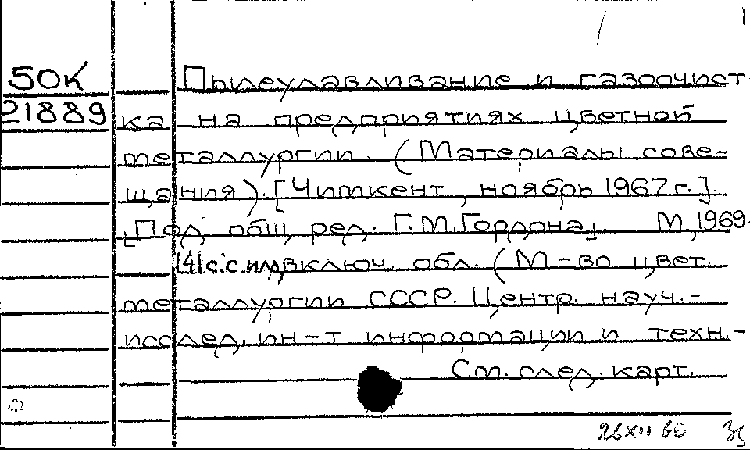 50К
21889
Пылеулавливание и газоочист
ка на предприятиях цветной
металлургии. (Материалы сове-
щания). [Чимкент, ноябрь 1967 г.]
[Под общ. ред. Г.М.Гордона]. М, 1969.
141с.с.илл. включ. обл. (М-во цвет.
металлургии СССР. Центр. науч.-
исслед. ин-т информации и техн.-
См. след. карт.